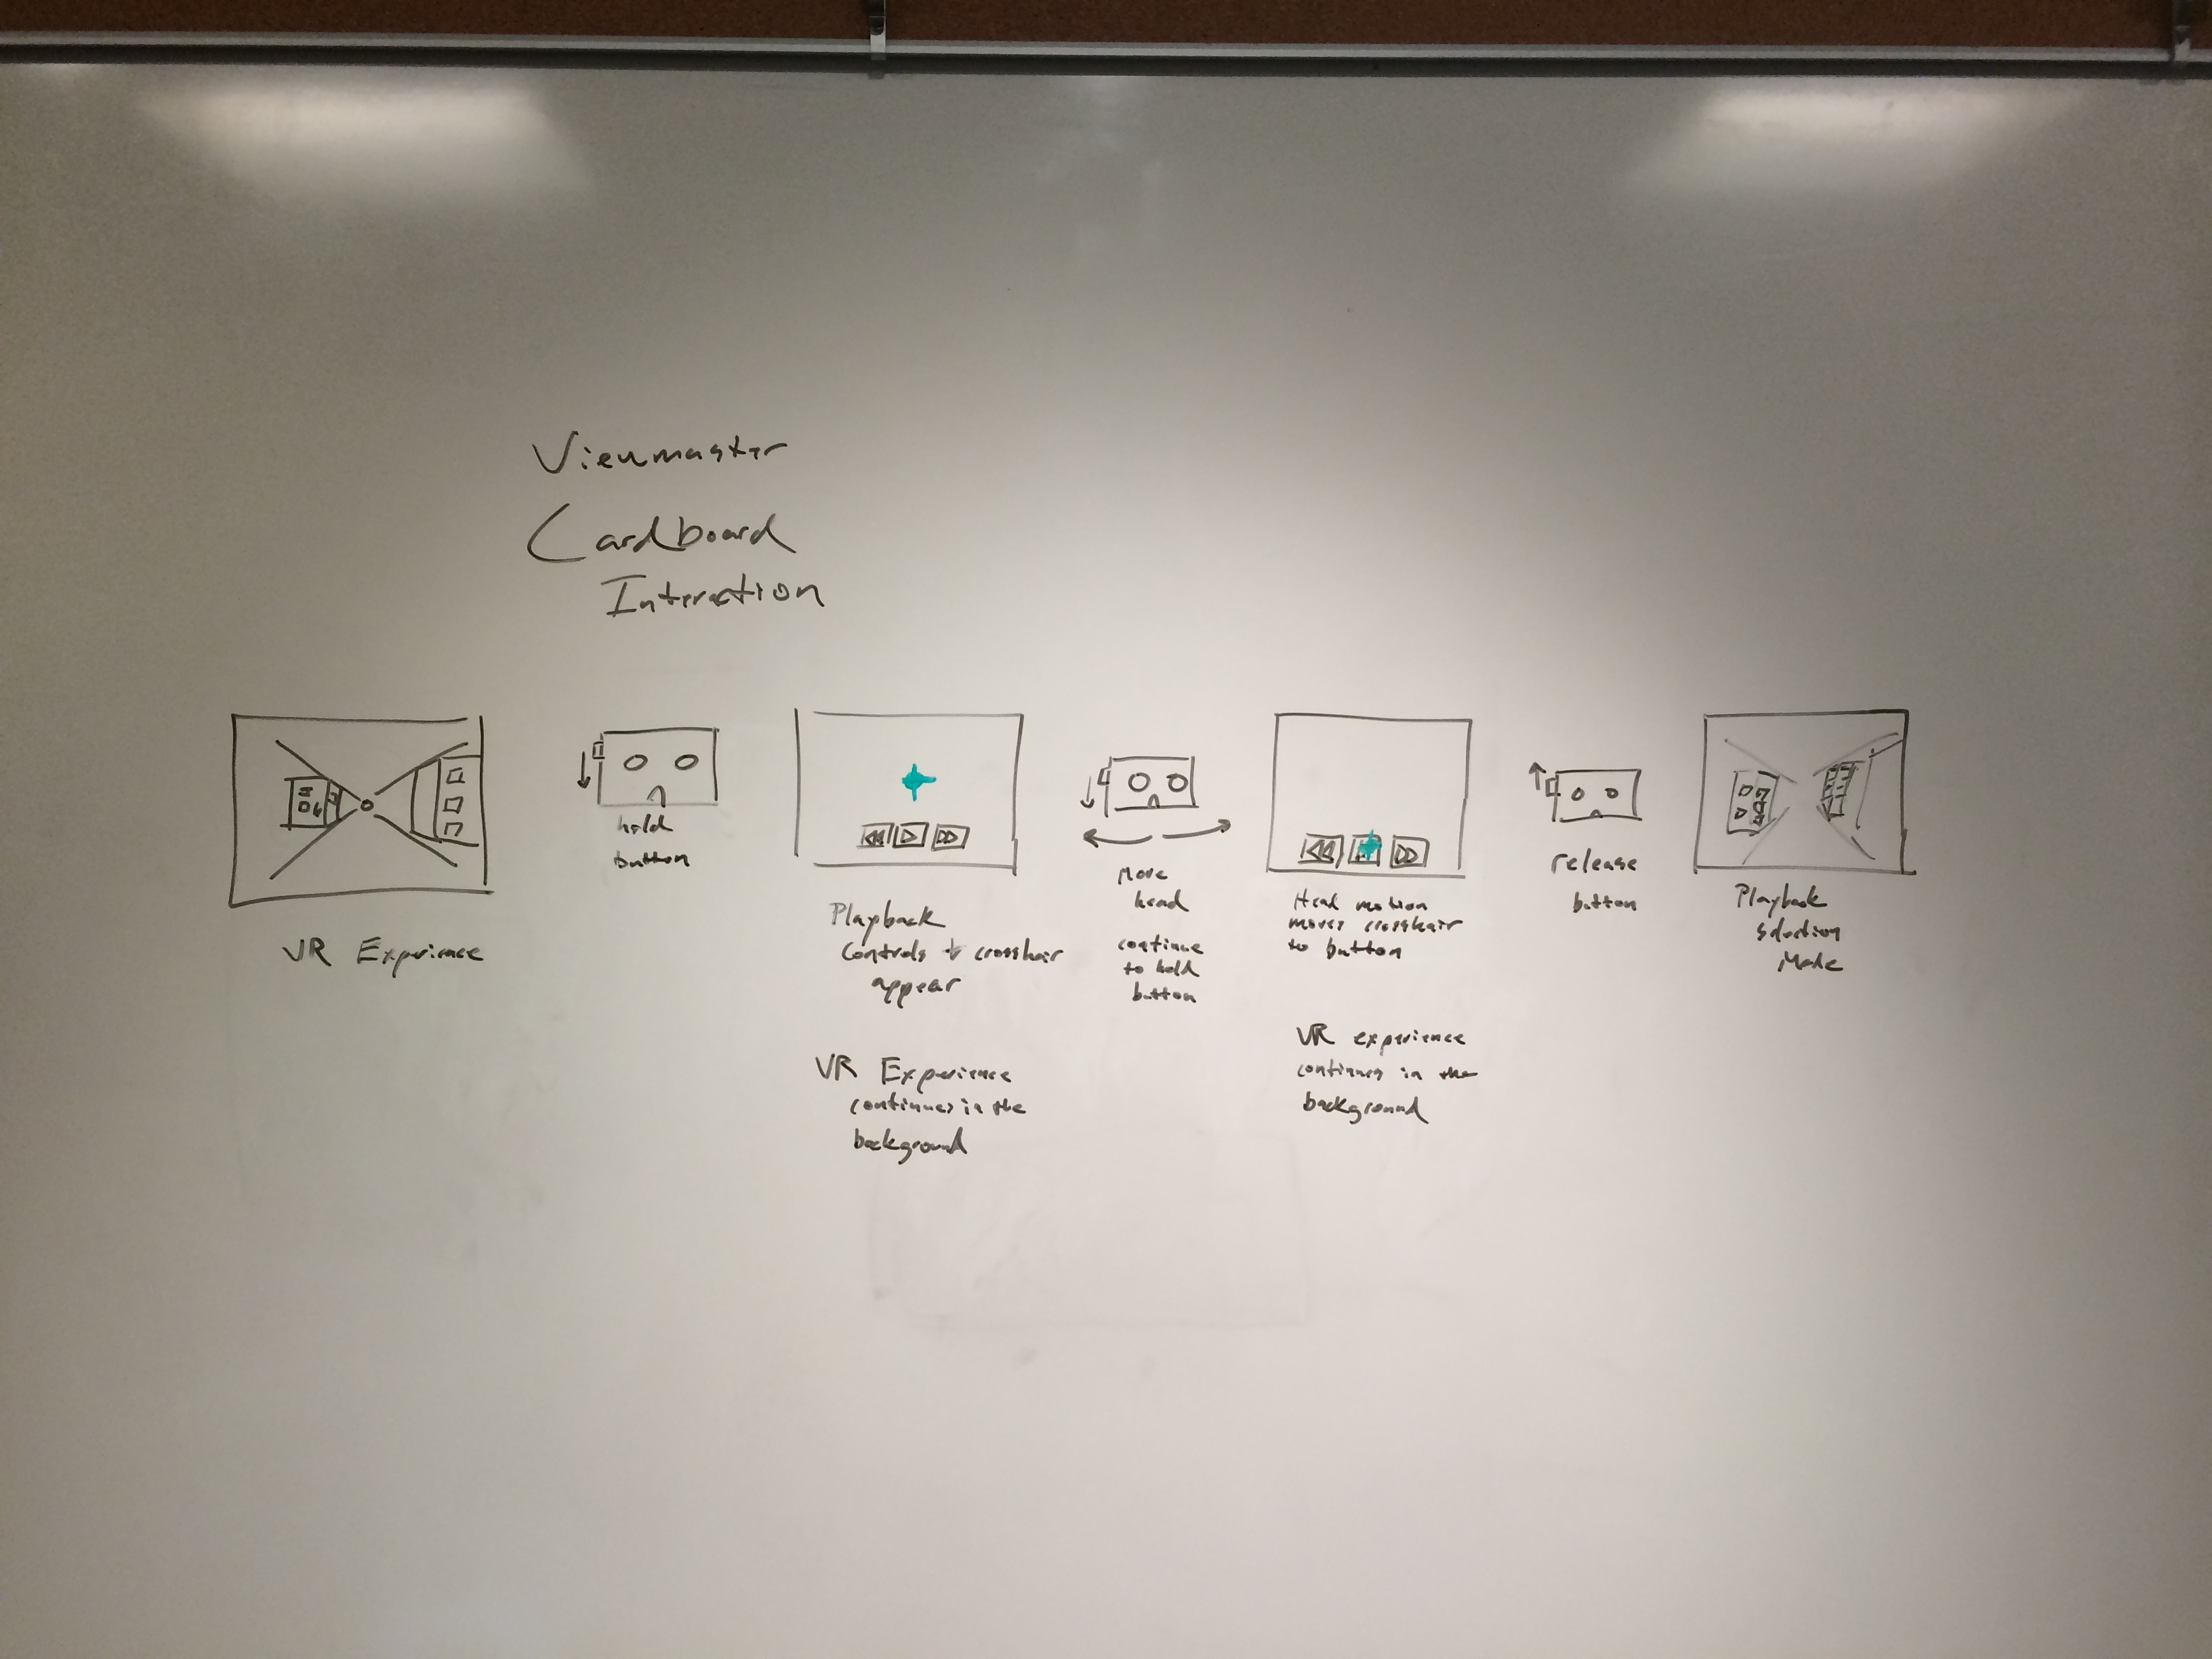 Viewmaster
Cardboard
Interaction
VR Experience
hold
button
Playback
Controls + crosshair
appear
VR Experience
continues in the
background
Move
head
continue
to hold
button
Head motion
moves crosshair
to button
VR experience
continues in the
background
release
button
Playback
Selection
Mode